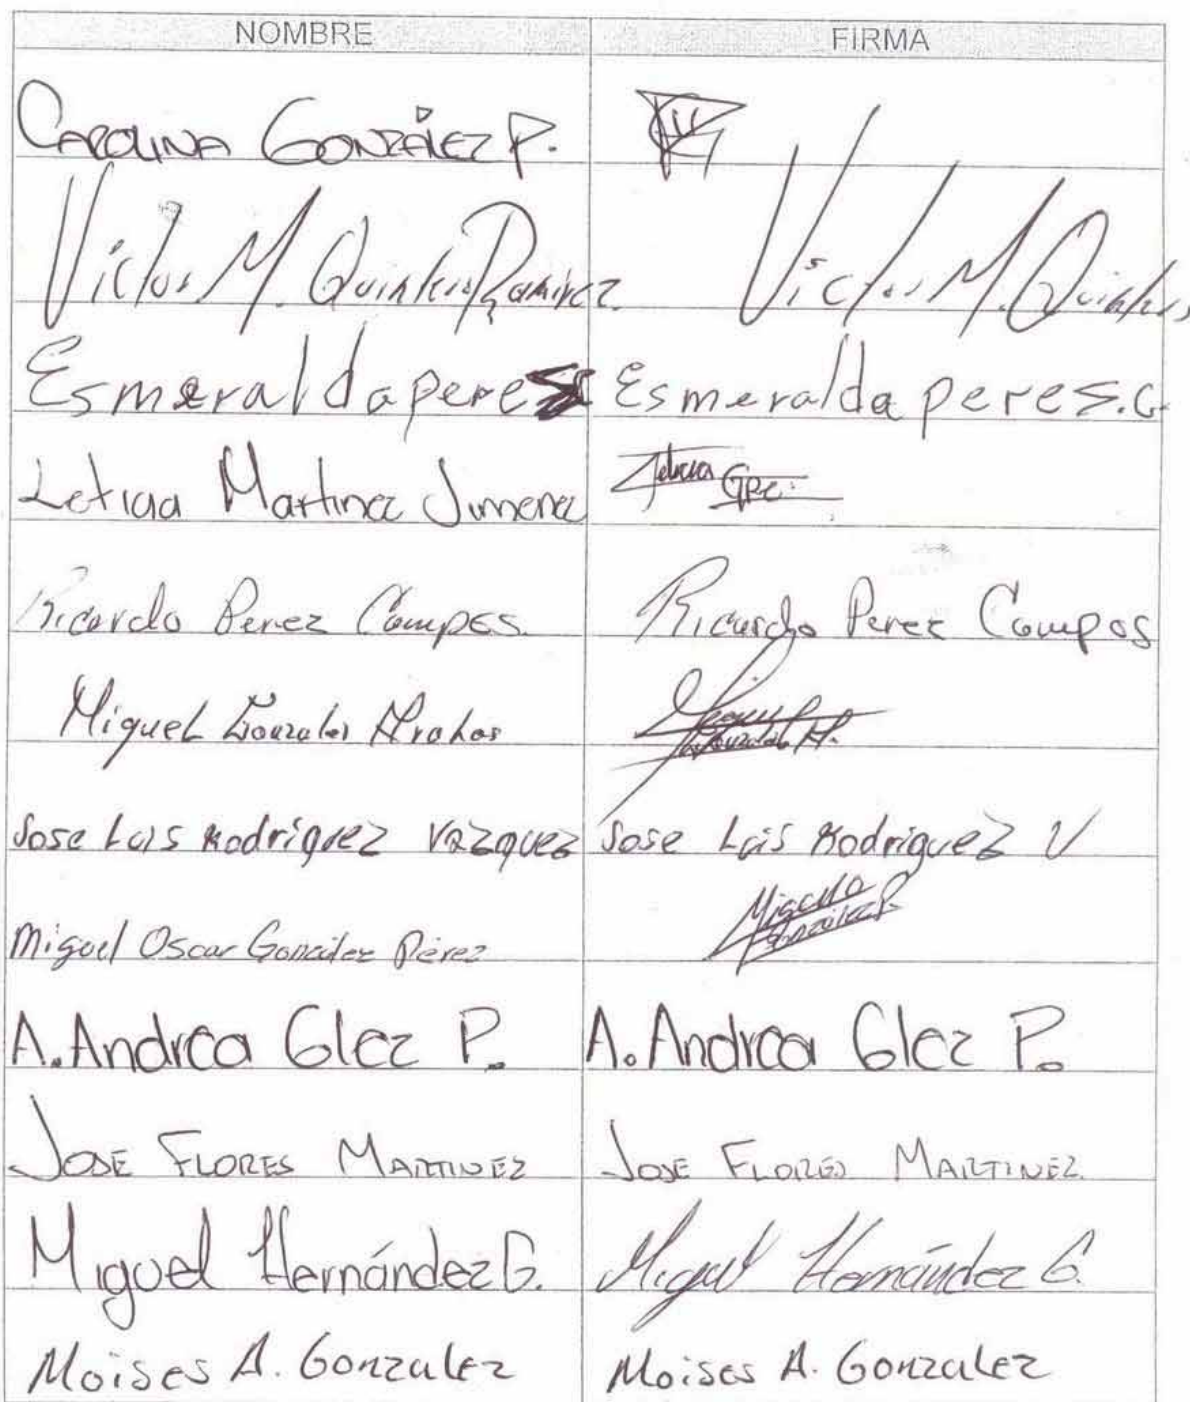 NOMBRE FIRMA
CAROLINA GONZÁLEZ P.
Victor M. Quintero Ramirez. Victor M. Quintero
Esmeralda peres Esmeralda peres.G.
Leticia Martinez Jimenez Leticia Gpe.
Ricardo Perez Campos. Ricardo Perez Campos
Miguel Gonzalez Miguel Gonzalez A.
Jose Luis Rodriguez Vazquez Jose Luis Rodriguez V
Miguel Oscar González Pérez Miguel O González P.
A. Andrea Glez P. A. Andrea Glez P.
JOSE FLORES MARTINEZ JOSE FLORES MARTINEZ.
Miguel Hernández G. Miguel Hernández G.
Moises A. Gonzalez Moises A. Gonzalez